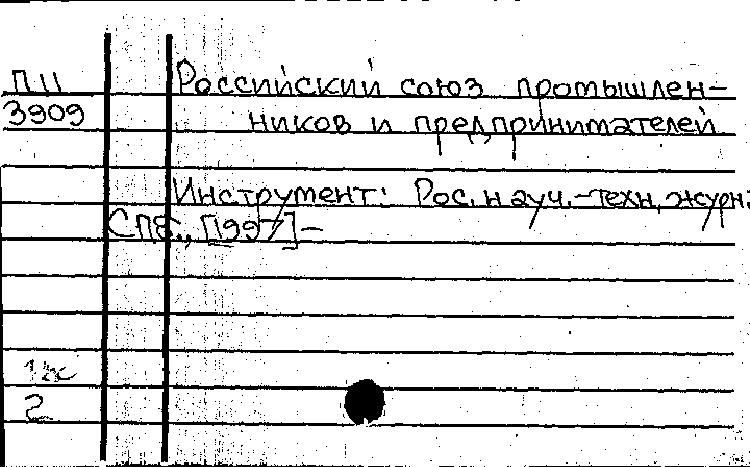 П11 Российский союз промышлен-
3909 ников и предпринимателей
Инструмент: Рос. науч.-техн. журн.
СПб., [1997]-
2